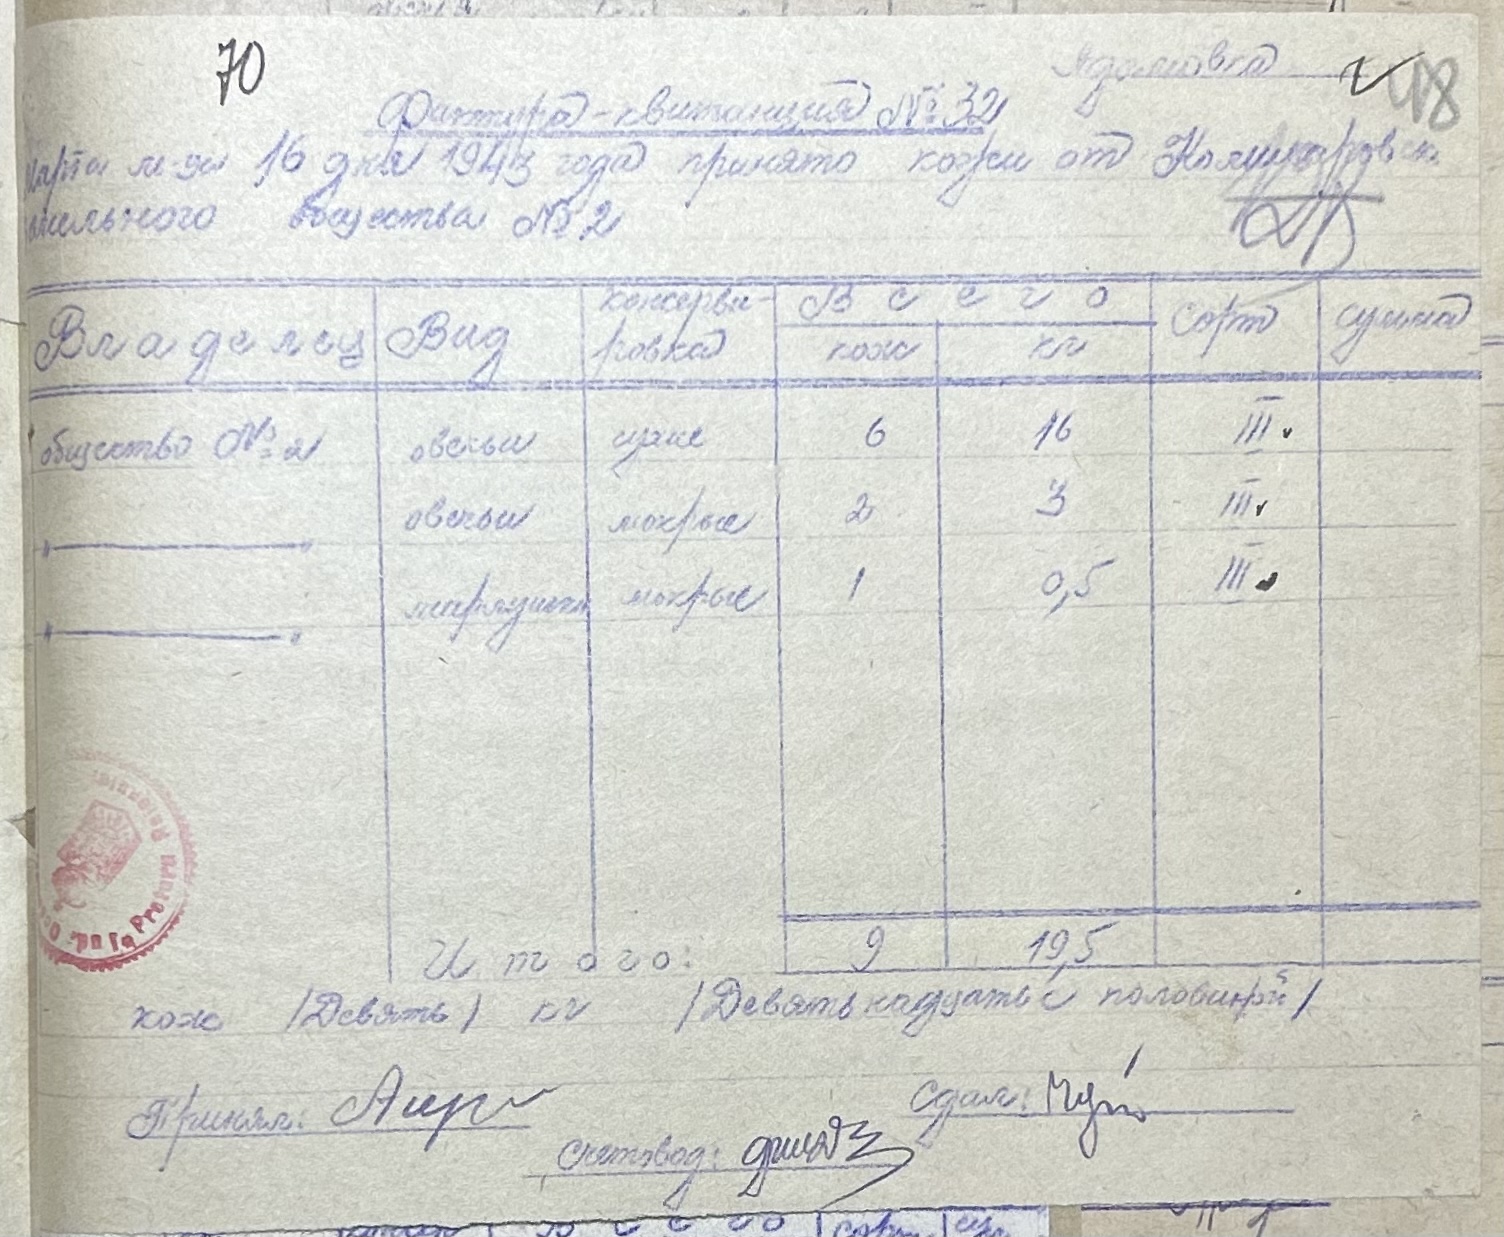 70
Адамовка 48
Фактура-квитанция № 32
Марта м-ца 16 дня 1943 года принято кожи от
земельного общества № 2
Владелец Вид консерви-ровка Всего кож кг сорт сумма
общество № 2 овечьи сухие 6 16 III
" — " овечьи мокрые 2 3 III
" — " мокрые 1 0,5 III
Итого: 9 19,5
кож /Девять/ кг /Девятьнадцать с половиной/
Принял:
Сдал:
Счетовод: